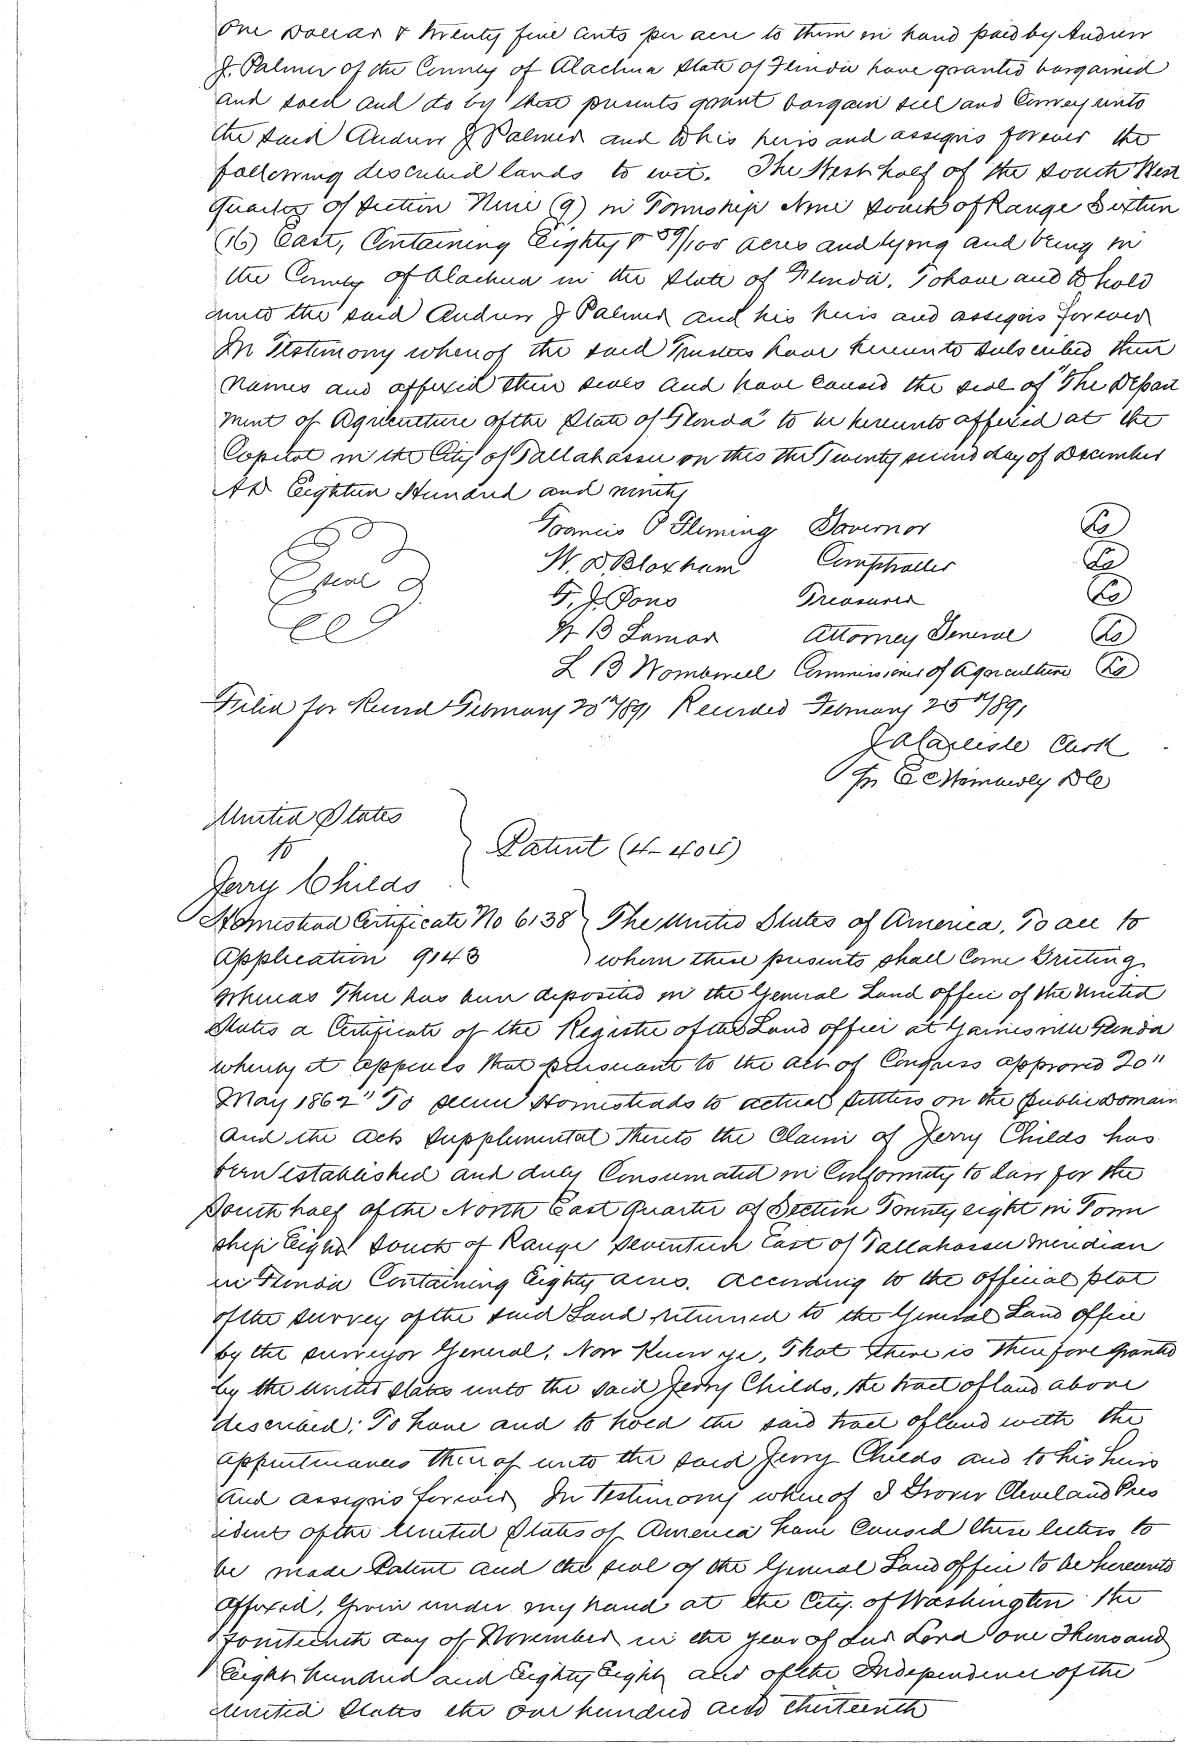 One Dollar & twenty five cents per acre to them in hand paid by Andrew
J. Palmer of the County of Alachua State of Florida have granted bargained
and sold and do by these presents grant bargain sell and Convey unto
the said Andrew J Palmer and to his heirs and assigns forever the
following described lands to wit. The West half of the South West
quarter of Section Nine (9) in Township Nine South of Range Sixteen
(16) East, Containing Eighty & 59/100 acres and lying and being in
the County of Alachua in the State of Florida. To have and to hold
unto the said Andrew J Palmer and his heirs and assigns forever
In Testimony whereof the said Trustees have hereunto subscribed their
names and affixed their seals and have caused the seal of "The Depart
ment of Agriculture of the State of Florida" to be hereunto affixed at the
Capitol in the City of Tallahassee on this the Twenty second day of December
AD Eighteen Hundred and ninety
Francis P Fleming Governor Ls
W. D. Bloxham Comptroller Ls
Seal
F. J. Pons Treasurer Ls
W B Lamar Attorney General Ls
L B Wombwell Commissioner of Agriculture Ls
Filed for Record February 20th/891 Recorded February 25th/891
J A Carlisle Clerk
Pr E C DC
United States
to
Jerry Childs
Patent (4-404)
Homestead Certificate No 6138 The United States of America, To all to
Application 9143 whom these presents shall Come Greeting
Whereas There has been deposited in the General Land office of the United
States a Certificate of the Register of the Land office at Gainesville Florida
whereby it appears that pursuant to the act of Congress approved 20"
May 1862 "To secure Homesteads to actual settlers on the public Domain
and the acts supplemental thereto the Claim of Jerry Childs has
been established and duly Consumated in Conformity to Law for the
South half of the North East quarter of Section Twenty eight in Town
ship Eight South of Range Seventeen East of Tallahassee Meridian
in Florida Containing Eighty acres. According to the official plat
of the survey of the said Land returned to the General Land office
by the surveyor General, Now Know ye, That there is therefore granted
by the United States unto the said Jerry Childs, the tract of land above
described; To have and to hold the said tract of land with the
appurtenances thereof unto the said Jerry Childs and to his heirs
and assigns forever In testimony whereof I Grover Cleveland Pres
ident of the United States of America have caused these letters to
be made Patent and the seal of the General Land office to be hereunto
affixed, Given under my hand at the City of Washington the
fourteenth day of November in the year of our Lord one Thousand
Eight hundred and Eighty Eight and of the Independence of the
United States the one hundred and thirteenth